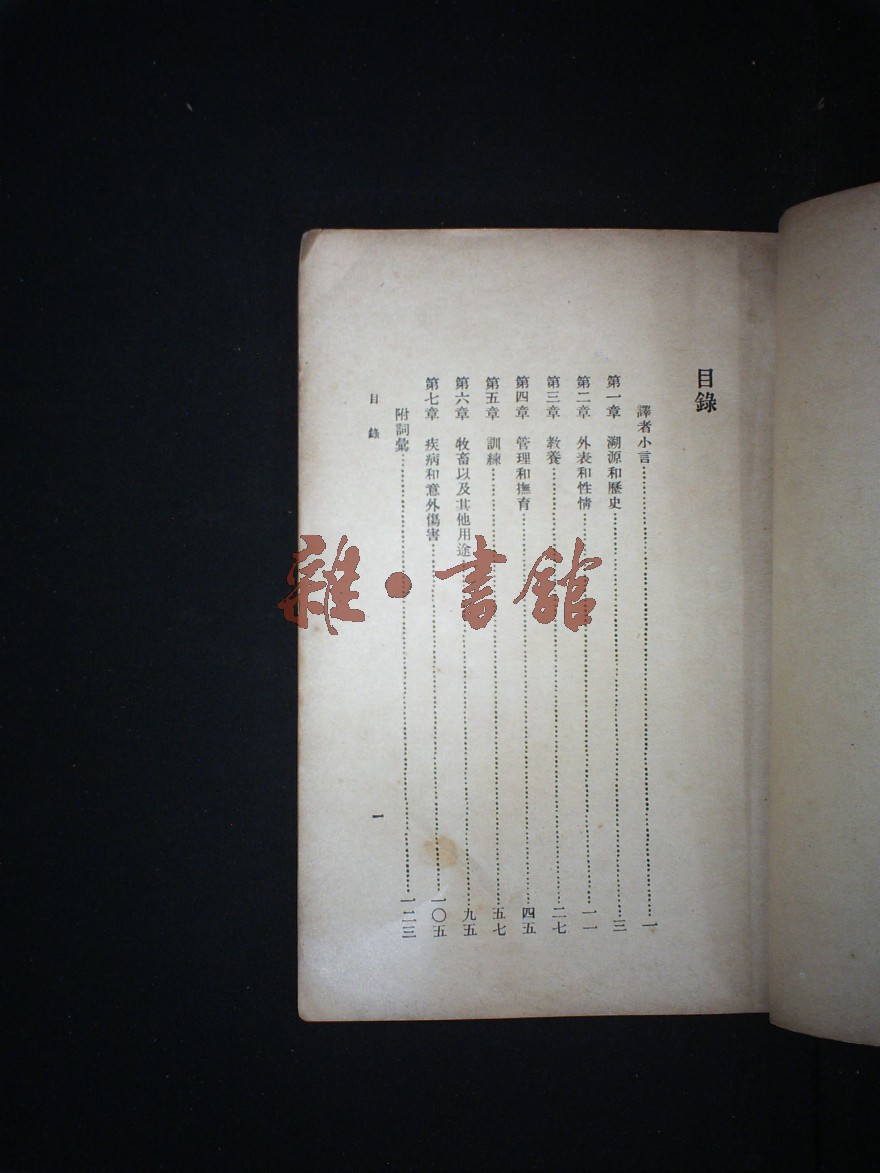 目錄
譯者小言……一
第一章 溯源和歷史……三
第二章 外表和性情……一一
第三章 教養……二七
第四章 管理和撫育……四五
第五章 訓練……五七
第六章 牧畜以及其他用途……九五
第七章 疾病和意外傷害……一〇五
附詞彙……一二三
目錄 一
雜·書館